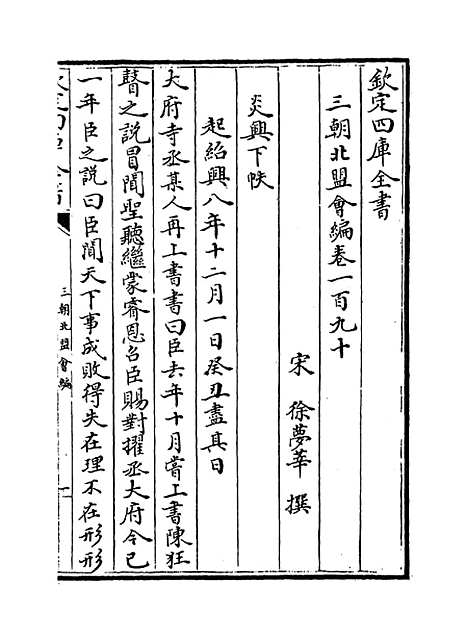 欽定四庫全書
三朝北盟會編卷一百九十
宋 徐夢莘 撰
炎興下帙
起紹興八年十二月一日癸丑盡其日
大府寺丞某人再上書書曰臣去年十月嘗上書陳狂
瞽之說冒聞聖聽繼蒙睿恩召臣賜對擢丞大府今已
一年臣之說曰臣聞天下事成敗得失在理不在形形
三朝北盟會編
一